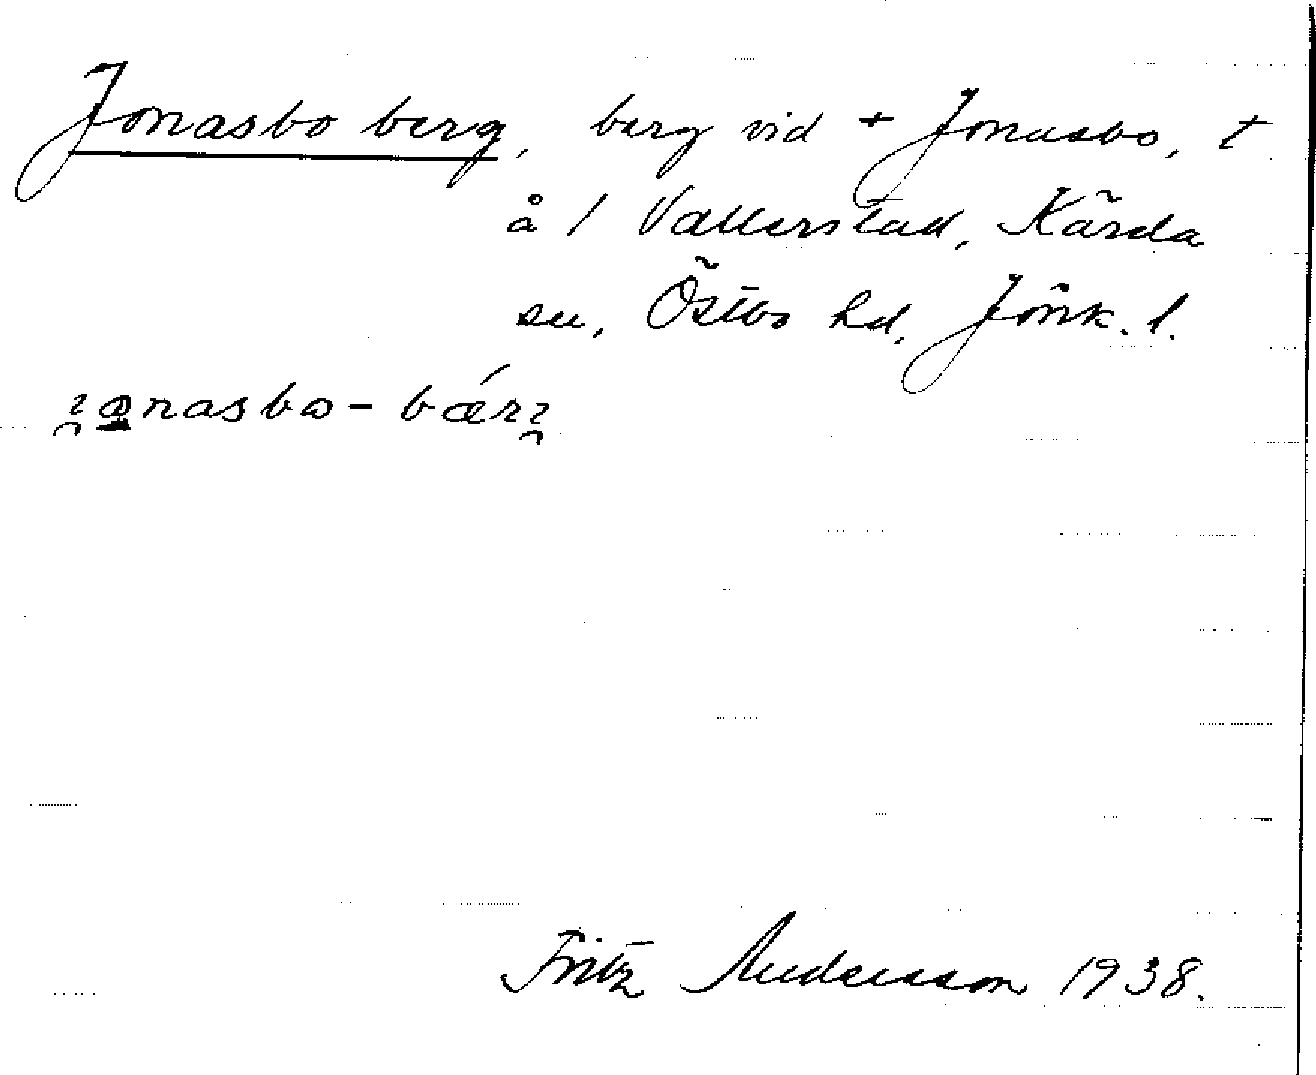 Jonasbo berg, berg vid + Jonasbo, t
å 1 Vallerstad, Kärda
sn, Östbo hd, Jönk. l.
Fritz Andersson 1938.